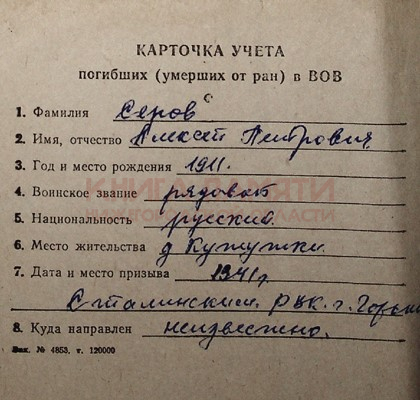 КАРТОЧКА УЧЕТА
погибших (умерших от ран) в ВОВ
С
1. Фамилия Серов
2. Имя, отчество Алексей Петрович
3. Год и место рождения 1911.
4. Воинское звание рядовой
5. Национальность русский
6. Место жительства д Кутушки
7. Дата и место призыва 1941г
Сталинским РВК г. Горьк
8. Куда направлен неизвестно.
Зак. № 4853, т. 120000
КНИГА ПАМЯТИ
НИЖЕГОРОДСКОЙ ОБЛАСТИ